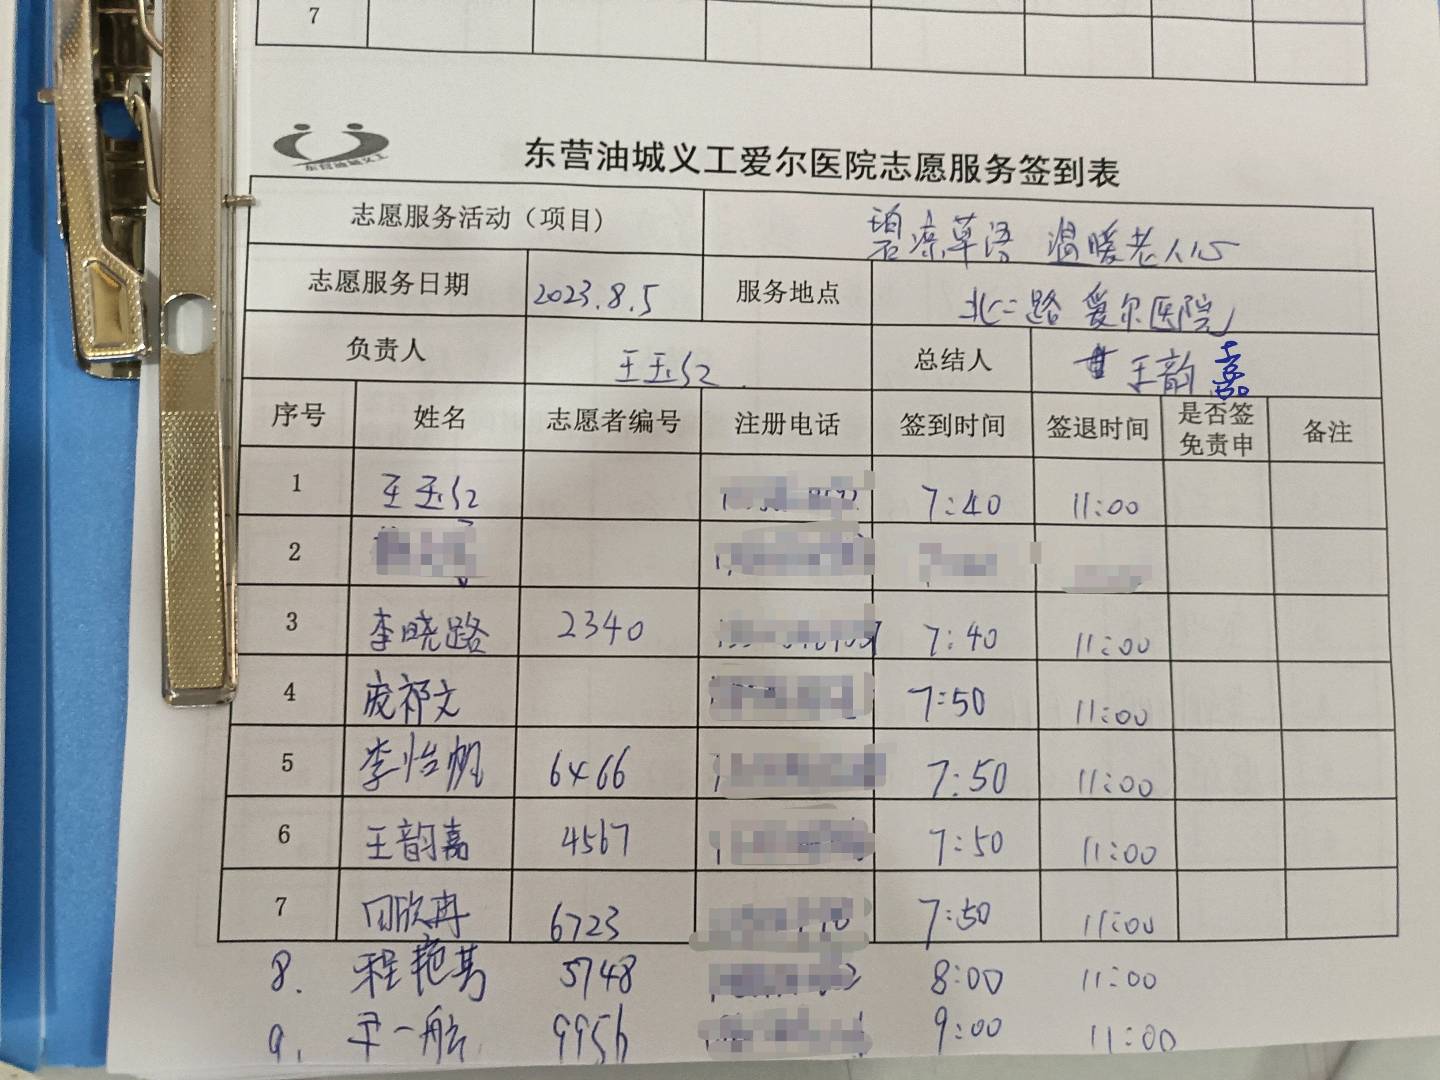 7
东营油城义工
东营油城义工爱尔医院志愿服务签到表
志愿服务活动（项目） 碧凉草语 温暖老人心
志愿服务日期 2023.8.5 服务地点 北二路 爱尔医院
负责人 王玉红 总结人 王韵嘉
序号 姓名 志愿者编号 注册电话 签到时间 签退时间 是否签免责申 备注
1 王玉红 7:40 11:00
2
3 李晓路 2340 7:40 11:00
4 庞祁文 7:50 11:00
5 李怡帆 6466 7:50 11:00
6 王韵嘉 4567 7:50 11:00
7 欣冉 6723 7:50 11:00
8. 程艳 5748 8:00 11:00
9. 一航 9956 9:00 11:00